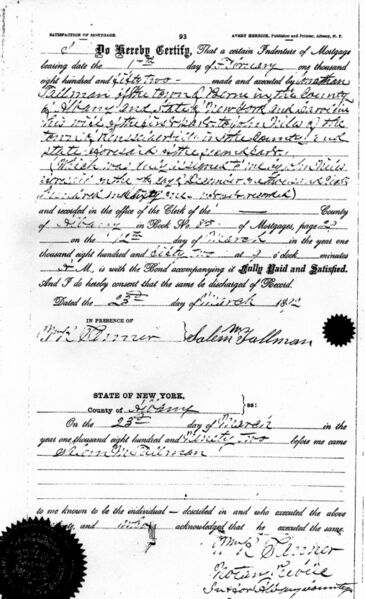 SATISFACTION OF MORTGAGE. 93 AVERY HERRICK, Publisher and Printer, Albany, N. Y.
I Do Hereby Certify, That a certain Indenture of Mortgage
bearing date the day of February one thousand
eight hundred and fifty two made and executed by Jonathan
Tallman of the town of Berne in the County
of Albany and State of New York and
his wife of the first part to John Niles of the
town of Rensselaerville in the County and
State aforesaid of the second part
(Which was duly assigned to me by John Niles
on the day of December
hundred and sixty one not recorded)
and recorded in the office of the Clerk of the County
of Albany in Book No. 88 of Mortgages, page
on the 12th day of March in the year one
thousand eight hundred and fifty two at 9 o'clock minutes
A M., is with the Bond accompanying it Fully Paid and Satisfied.
And I do hereby consent that the same be discharged of Record.
Dated the 23rd day of March 1892
IN PRESENCE OF
Salem Tallman
STATE OF NEW YORK,
County of Albany ss:
On the 23rd day of March in the
year one thousand eight hundred and Ninety Two before me came
Salem Tallman
to me known to be the individual described in and who executed the above
and acknowledged that he executed the same.
Notary Public
Albany County